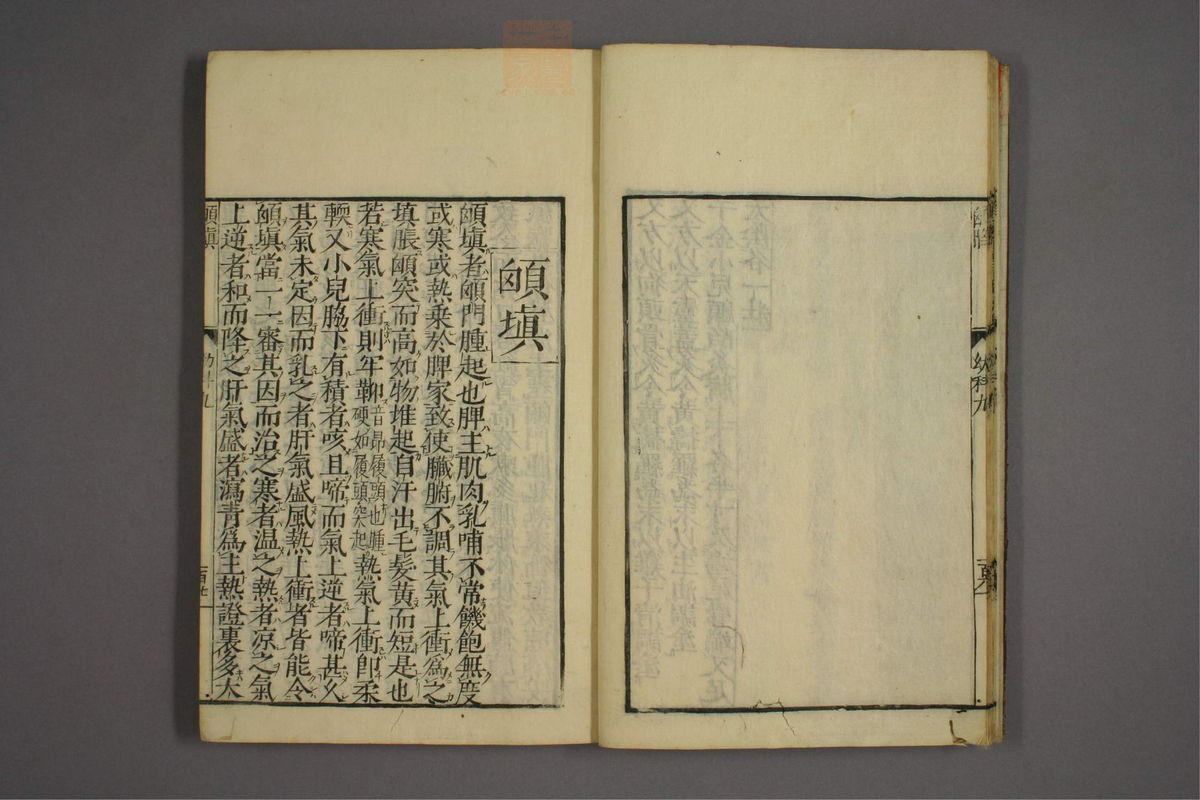 幼科九
顖塡
顖塡者顖門腫起也脾主肌肉乳哺不常饑飽無度
或寒或熱乗於脾家致使臟腑不調其氣上衝爲之
填脹顖突而高如物堆起自汗出毛髮黄而短是也
若寒氣上衝則牢靭䩕音昻履頭也腫硬如履頭突起熱氣上衝卽柔
輭又小兒脇下有積者咳且啼而氣上逆者啼甚久
其氣未定因而乳之者肝氣盛風熱上衝者皆能令
顖塡當一一審其因而治之寒者温之熱者凉之氣
上逆者和而降之肝氣盛者瀉青爲主熱證裏多大
顖塡